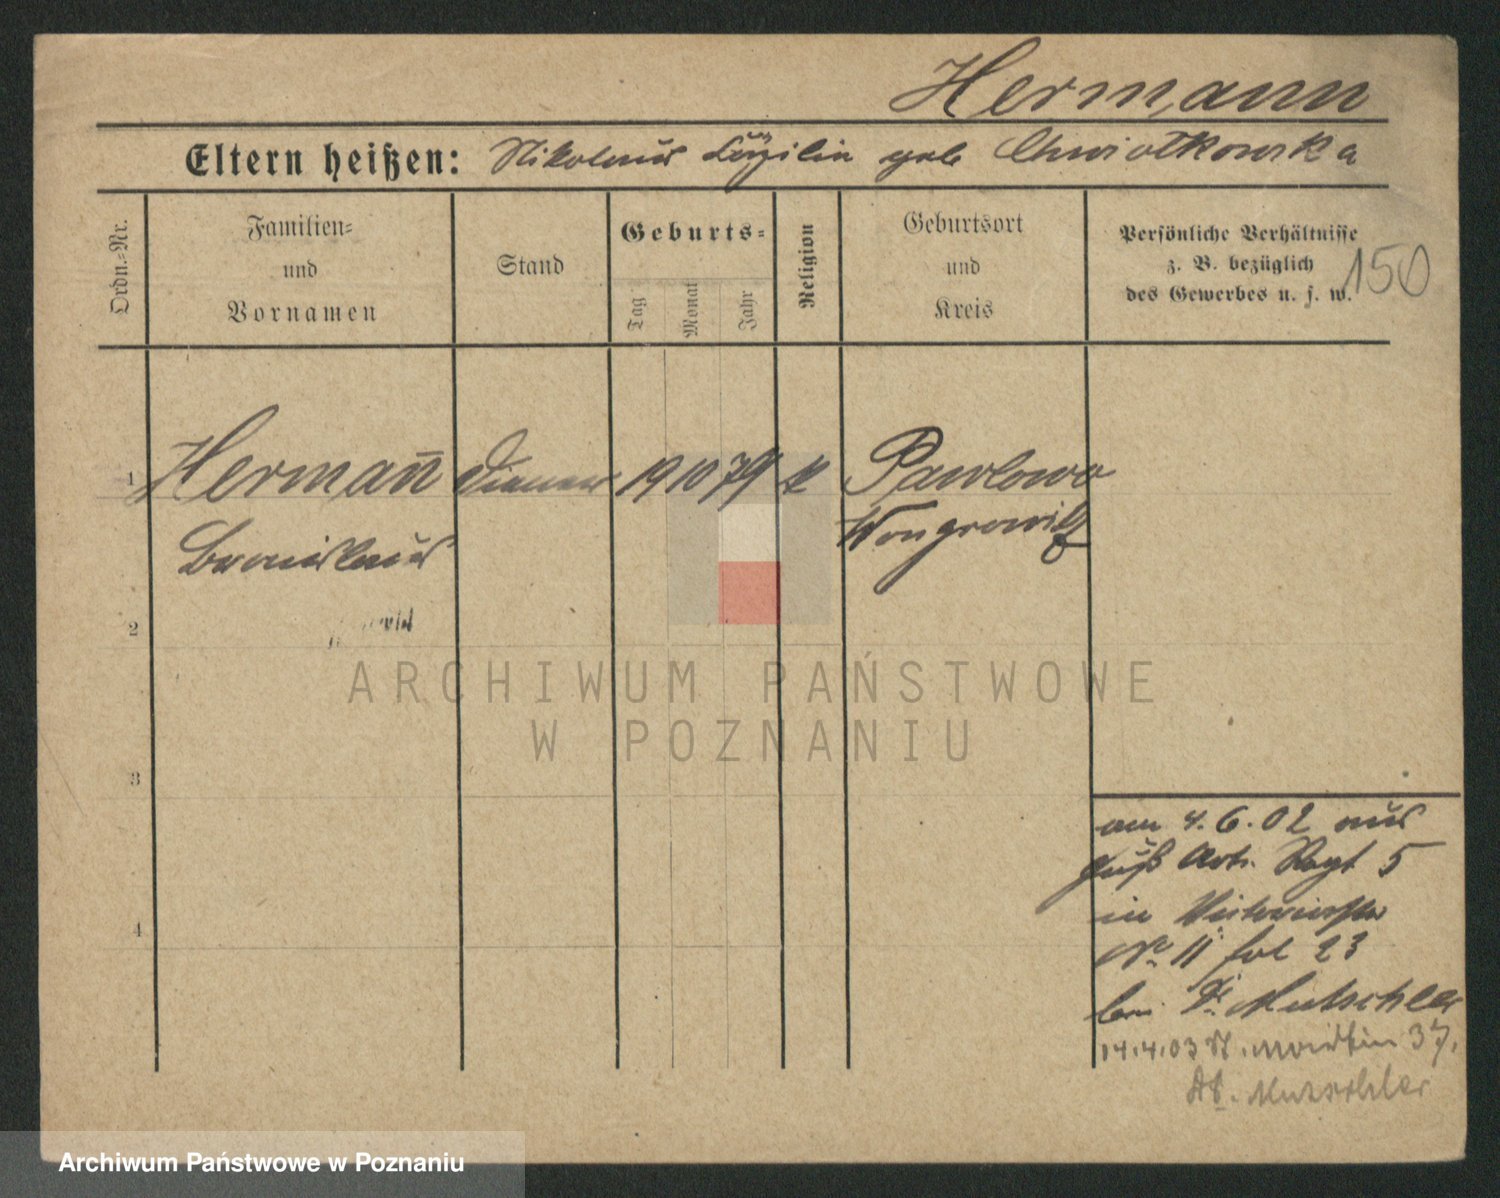 Hermann
Eltern heißen: Nikolaus Cäzilia geb Chwiatkowska
Ordn.-Nr.
Familien-
und
Vornamen
Stand
Geburts-
Tag
Monat
Jahr
Religion
Geburtsort
und
Kreis
Persönliche Verhältnisse
z. B. bezüglich
des Gewerbes u. s. w.
150
1 Hermañ Diener 19 10 79 k Pawlowo
Bronislaus Wongrowitz
2
3
4
am 4.6.02 aus
Fuß Art. Regt 5
in Victoriastr
No 11 fol 23
bei Dr. Mutschler
14.4.03 St. Martin 37.
Ab. Mutschler
ARCHIWUM PAŃSTWOWE
W POZNANIU
Archiwum Państwowe w Poznaniu